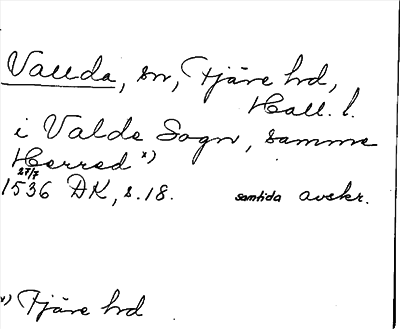 Vallda, sn, Fjäre hd,
Hall. l.
i Valde Sogn, samme
Herred x)
27/7
1536 DK, s. 18. samtida avskr.
x) Fjäre hd